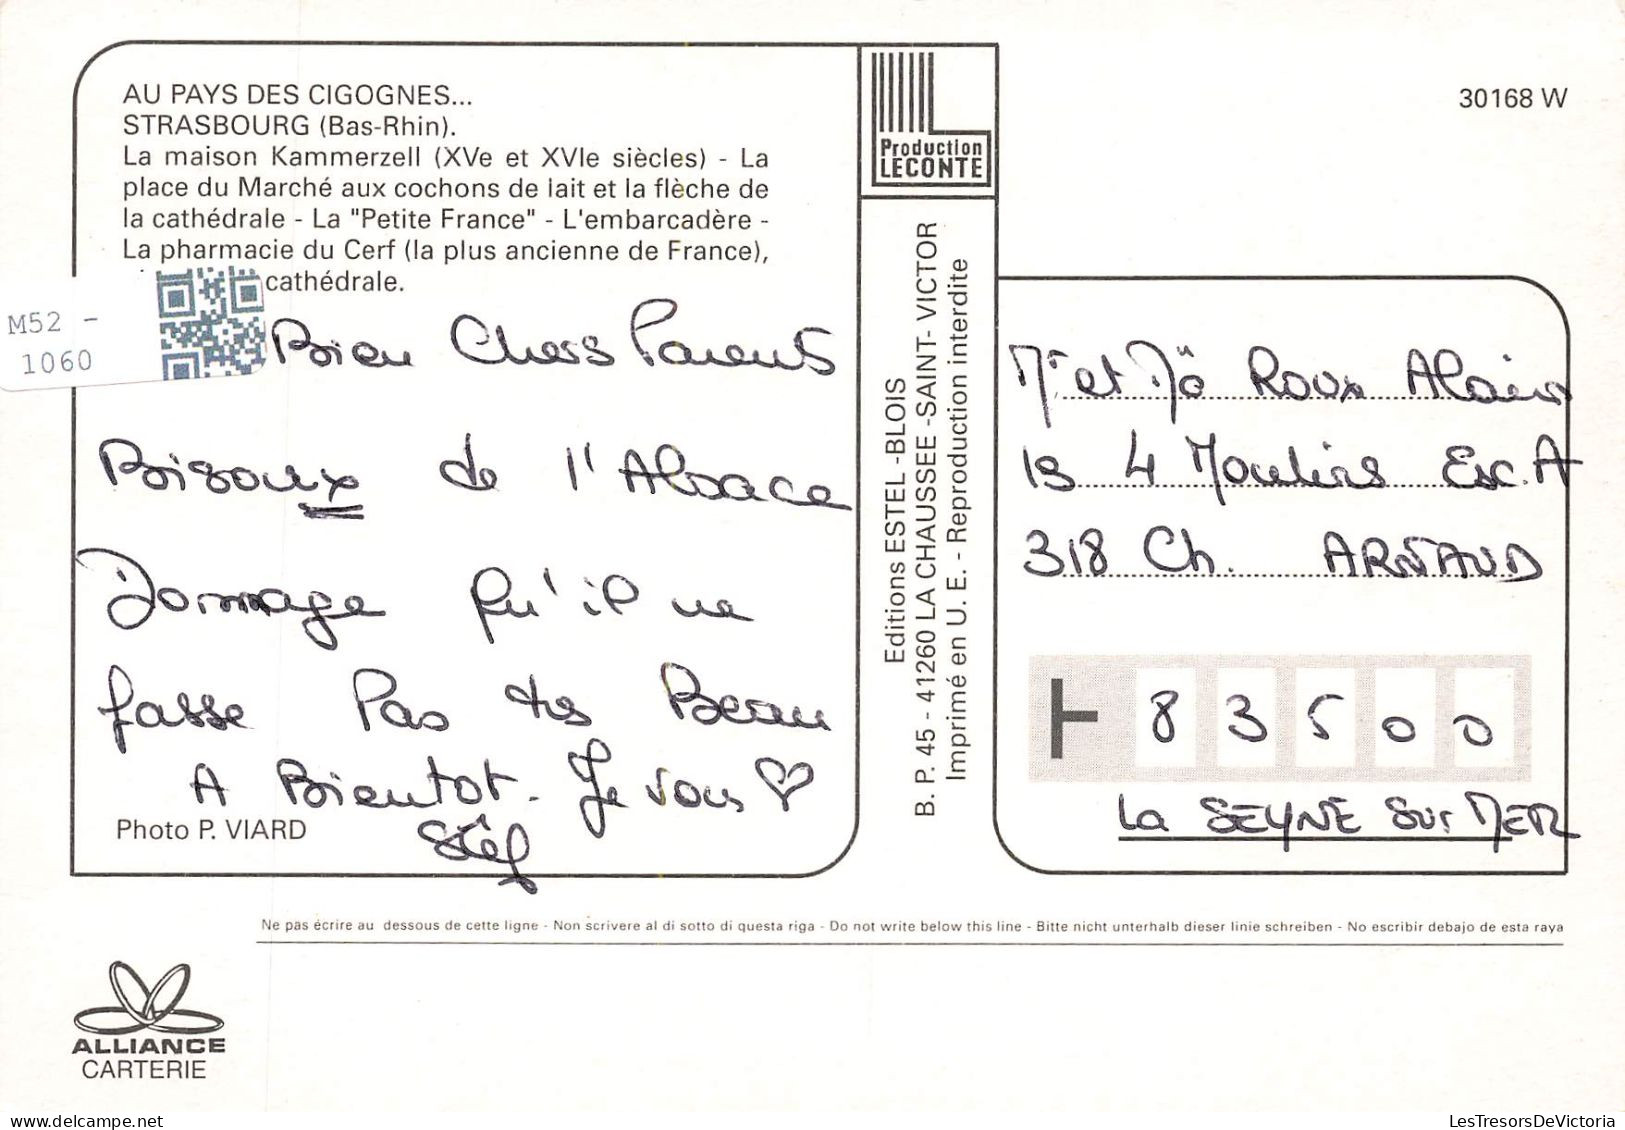 AU PAYS DES CIGOGNES...
STRASBOURG (Bas-Rhin).
La maison Kammerzell (XVe et XVIe siècles) - La
place du Marché aux cochons de lait et la flèche de
la cathédrale - La "Petite France" - L'embarcadère -
La pharmacie du Cerf (la plus ancienne de France),
cathédrale.
M52 -
1060
Bien Chers Parents
Bisoux de l'Alsace
Dommage qu'il ne
fasse Pas très Beau
A Bientot. Je vous ♡
Stéf
Photo P. VIARD
Production
LECONTE
Editions ESTEL -BLOIS
B. P. 45 - 41260 LA CHAUSSEE -SAINT- VICTOR
Imprimé en U. E. - Reproduction interdite
30168 W
Mr et Mö Roux Alain
4 Moulins Esc. A
318 Ch. ARNAUD
83500
La SEYNE Sur MER
Ne pas écrire au dessous de cette ligne - Non scrivere al di sotto di questa riga - Do not write below this line - Bitte nicht unterhalb dieser linie schreiben - No escribir debajo de esta raya
ALLIANCE
CARTERIE
LesTresorsDeVictoria